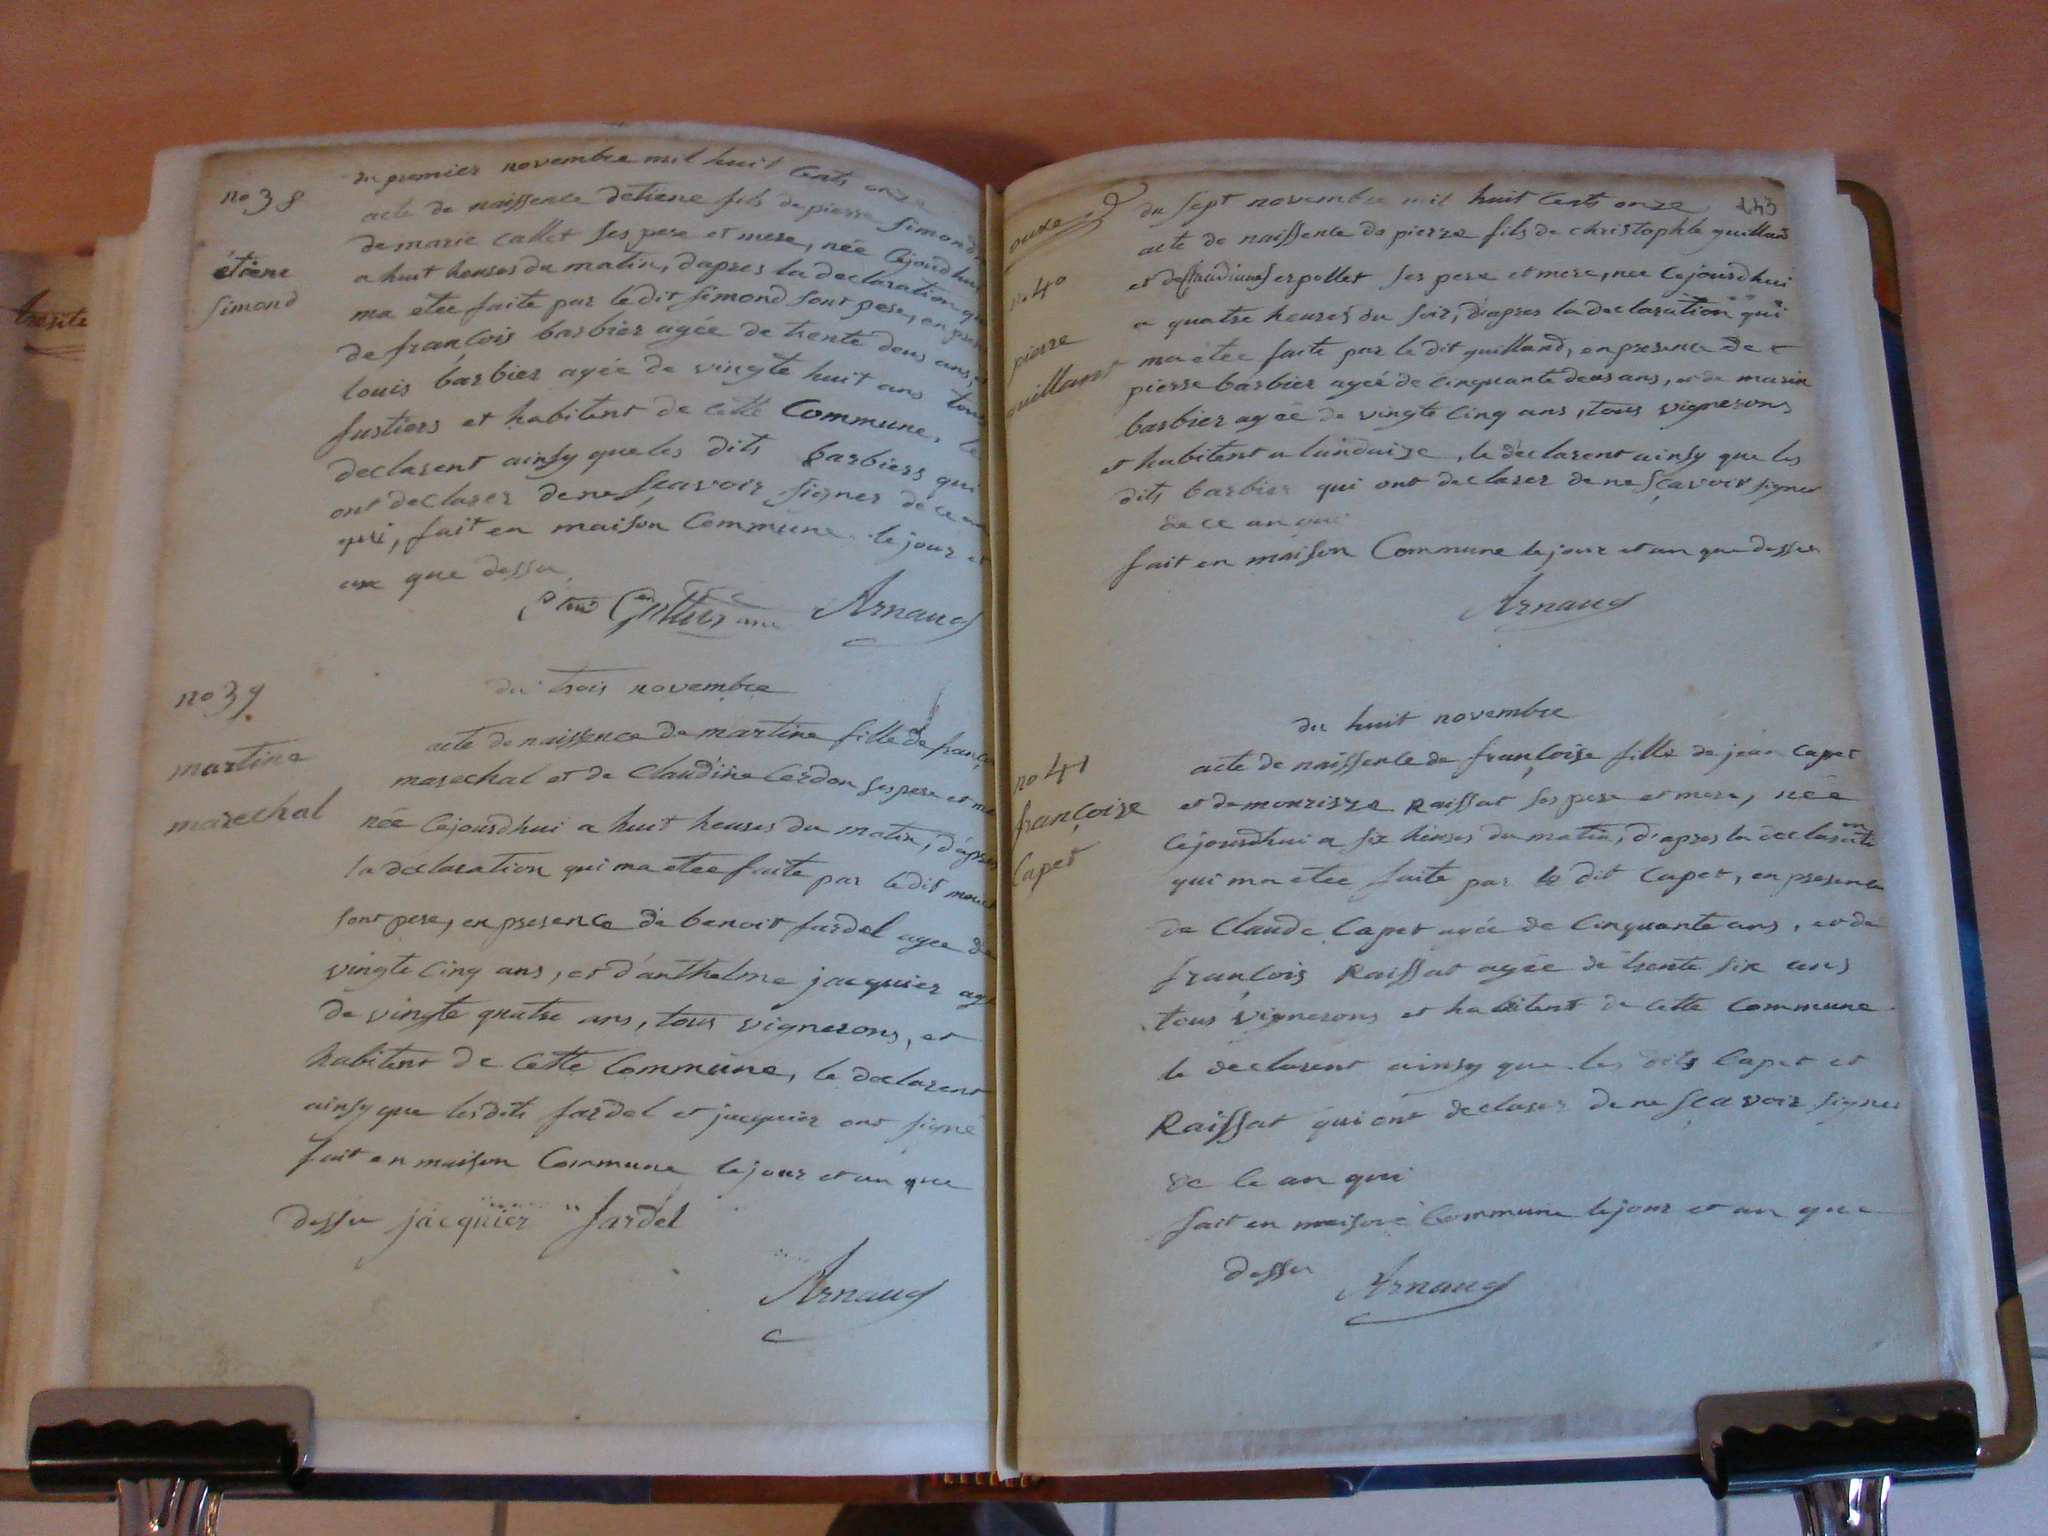 no 38
étiene
simond
du premier novembre mil huit cents onze
acte de naissence detiene fils de pierre simond
de marie callet ses pere et mere, née cejourdhui
a huit heures du matin, dapres la declaration que
ma etee faite par ledit simond sont pere, en pres
de françois barbier agée de trente deus ans, et
louis barbier agée de vingte huit ans tous
fustiers et habitent de cette Commune, le
declarent ainsy que les dits barbiers qui
ont declarer de ne sçavoir signer de ce en
qui, fait en maison Commune le jour et
an que dessu
Arnaud
no 39
martine
marechal
du trois novembre
acte de naissence de martine fille de françoi
marechal et de Claudine Cerdon ses pere et me
née Cejourdhui a huit heures du matin, d'apres
la declaration qui ma etee faite par ledit
sont pere, en presence de benoit fardel agee de
vingte cinq ans, et d'anthelme jacquier agé
de vingte quatre ans, tous vignerons, et
habitent de Cette Commune, le declarent
ainsy que lesdits fardel et jacquier ont signé
fait en maison Commune le jour et an que
dessu jacquier fardel
Arnaud
143
onze
no 40
pierre
guilland
du sept novembre mil huit Cents onze
acte de naissence de pierre fils de christophle guilland
et de Claudine serpollet ses pere et mere, nee Cejourdhui
a quatre heures du soir, d'apres la declaration qui
ma etee faite par le dit guilland, en presence de
pierre barbier agée de cinquante deus ans, et de marin
barbier agée de vingte Cinq ans, tous vignerons
et habitent a landaize, le declarent ainsy que les
dits barbier qui ont declarer de ne sçavoir signer
de ce an qui
fait en maison Commune le jour et an que dessu
Arnaud
no 41
françoise
Capet
du huit novembre
acte de naissence de françoise fille de jean Capet
et de mourisze Raissat ses pere et mere, née
Cejourdhui a six heures du matin, d'apres la declaration
qui ma etee faite par le dit Capet, en presence
de Claude Capet agée de Cinquante ans, et de
françois Raissat agée de trente six ans
tous vignerons et habitent de Cette Commune
le declarent ainsy que les dits Capet et
Raissat qui ont declarer de ne sçavoir signer
de Ce an qui
fait en maison Commune le jour et an que
dessu Arnaud